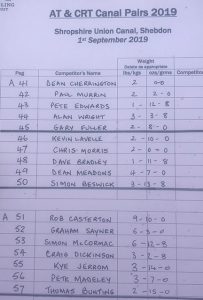 LING
UST
AT & CRT Canal Pairs 2019
Shropshire Union Canal, Shebdon
1st September 2019
Weight
Delete as appropriate
Peg Competitor's Name lbs/kgs ozs/grms Competitor
A 41 DEAN CHERRINGTON 2 0-0
42 PAUL MURRIN 2 2-0
43 PETE EDWARDS 1-12-8
44 ALAN WRIGHT 3-3-8
45 GARY FULLER 2-8-0
46 KEVIN LAVELLE 2-10-0
47 CHRIS MORRIS 2-0-0
48 DAVE BRADLEY 1-11-8
49 DEAN MEADONS 4-7-0
50 SIMON BESWICK 3-13-8
A 51 ROB CASTERTON 9-10-0
52 GRAHAM SAYNER 6-3-0
53 SIMON McCORMAC 6-12-8
54 CRAIG DICKINSON 3-2-8
55 KYE JERROM 3-14-0
56 PETE MADELEY 3-7-0
57 THOMAS BUNTING 2-15-0